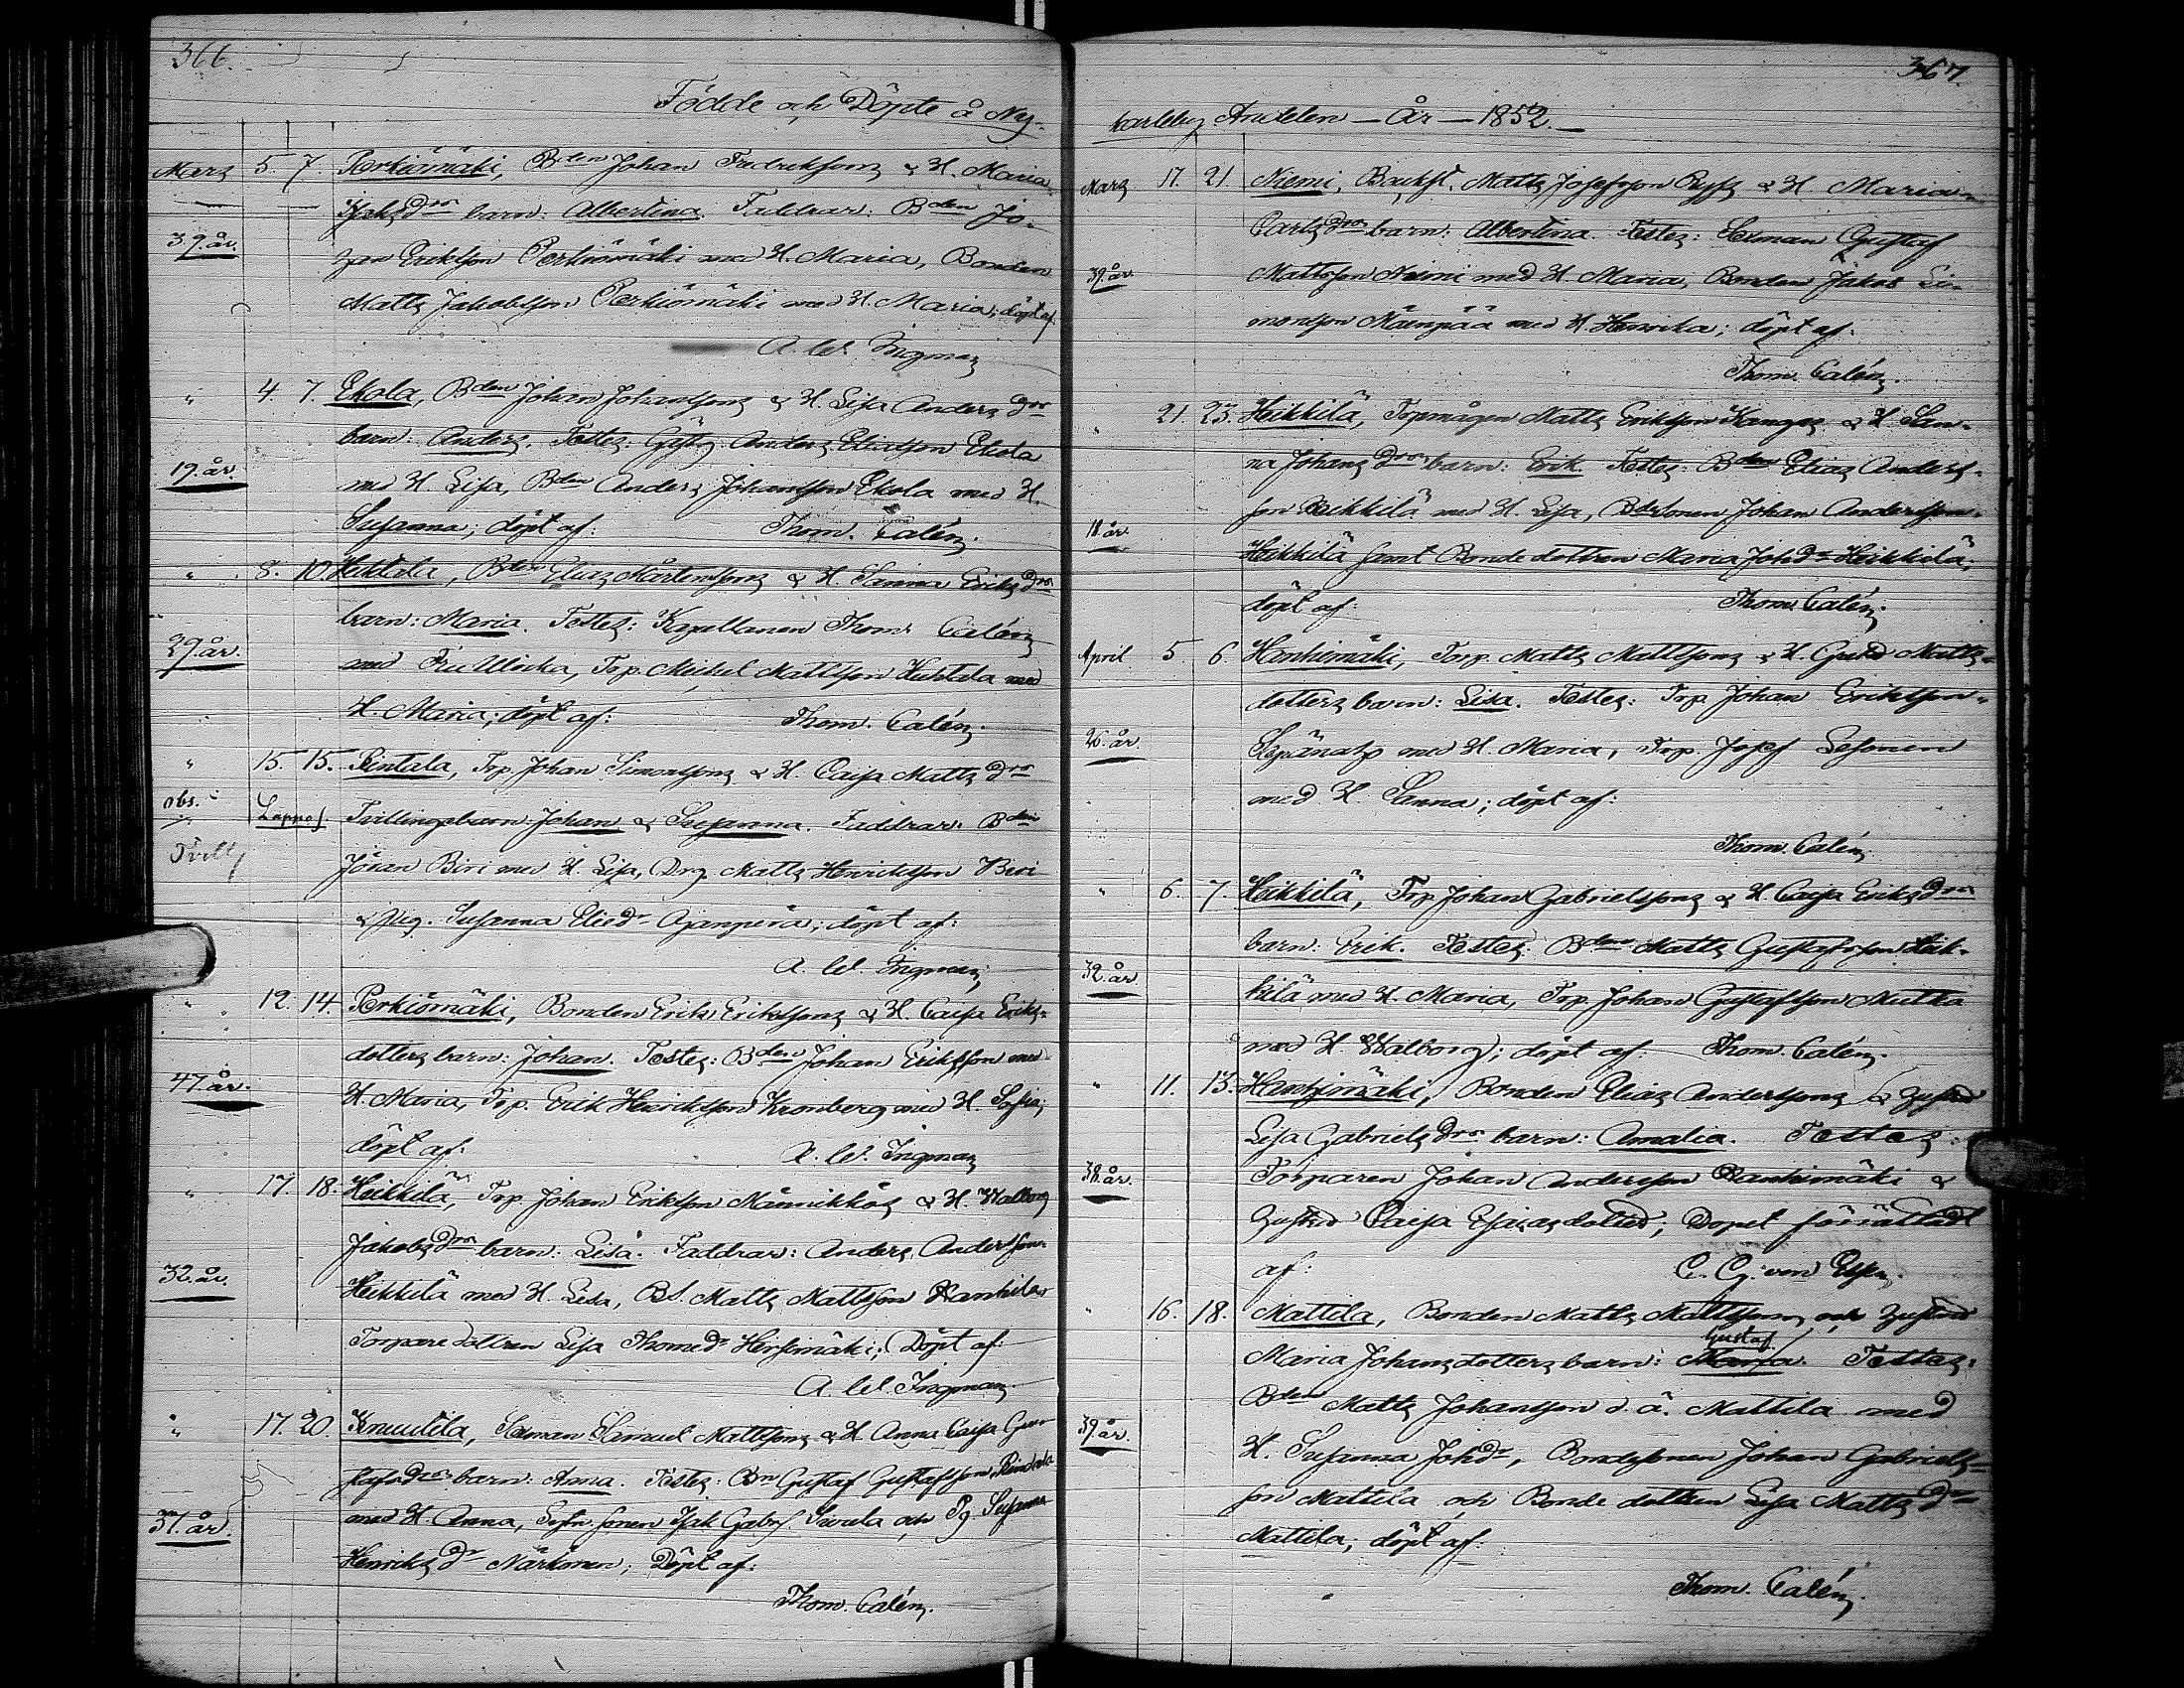 366.
Födde och Döpte å Ny-
Mars 5. 7. Perkiömäki, Bden Johan Fredriksons & H. Maria
Isaks drs barn: Albertina. Faddrar: Bden Jö-
39. år.
ran Erikson Perkiömäki med H. Maria, Bonden
Matts Jakobsson Perkiömäki med H. Maria; döpt af:
A. W. Ingman
" 4. 7. Ekola, Bden Johan Johanssons & H. Lisa Anders drs
barn: Anders. Testes: Gästg. Anders Eliasson Ekola
19. år
med H. Lisa, Bden Anders Johansson Ekola med H.
Susanna; döpt af: Thom. Calén.
" 8. 10. Huhtala, Bden Elias Mårtenssons & H. Sanna Eriks drs
barn: Maria. Testes: Kapellanen Thom. Calén
29. år.
med Fru Ulrika, Torp. Michel Mattsson Huhtala med
H. Maria; döpt af: Thom. Calén.
" 15. 15. Rintala, Torp. Johan Simonssons & H. Caisa Matts drs
obs. Lappo s. Tvillingebarn: Johan & Susanna. Faddrar: Bden
Tvill
Jöran Biri med H. Lisa, Drg. Matts Henriksson Biri
& Pig. Susanna Elied:r Ojanperä; döpt af:
A. W. Ingman
" 12. 14. Perkiömäki, Bonden Erik Erikssons & H. Caisa Eriks-
dotters barn: Johan. Testes: Bden Johan Eriksson med
47. år.
H. Maria, Torp. Erik Henriksson Kronberg med H. Sofia;
döpt af: A. W. Ingman
" 17. 18. Heikkilä, Torp. Johan Eriksson Männikkös & H. Walborg
Jakobs drs barn: Lisa. Faddrar: Anders Andersson
32. år.
Heikkilä med H. Lisa, Bs. Matts Mattsson Kanhila
Torparedottren Lisa Thomed:r Hirsimäki; Döpt af:
A. W. Ingman
" 17. 20. Knuutila, Sexman Samuel Mattssons & H. Anna Caisa Gus-
stafs drs barn: Anna. Testes: Bn Gustaf Gustafsson Rindala
31. år.
med H. Anna, sonen Isak Gabrs. Sivula och Pg. Susanna
Henriks dr Närkönen; Döpt af:
Thom. Calén.
367.
karleby Andelen – År – 1852.
Mars 17. 21. Niemi, Backst. Matts Josefsson Ryss & H. Maria
Carls drs barn: Albertina. Testes: Sexman Gustaf
39. år
Mattsson Niemi med H. Maria, Bonden Jakob Si-
monsson Näenpää med H. Henrika; döpt af:
Thom. Calén.
" 21. 25. Heikkilä, Torpmågen Matts Eriksson Kangas & H. San-
na Johans drs barn: Erik. Testes: Bden Elias Anders-
son Heikkilä med H. Lisa, Bdesonen Johan Andersson
18. år.
Heikkilä samt Bondedottren Maria Johdr Heikkilä;
döpt af: Thom. Calén.
April 5. 6. Hanhimäki, Torp. Matts Mattssons & H. Greta Matts-
dotters barn: Lisa. Testes: Torp. Johan Eriksson
26. år.
med H. Maria, Torp. Josef Lesonen
med H. Sanna; döpt af:
Thom. Calén.
" 6. 7. Heikkilä, Torp Johan Gabrielssons & H. Caisa Eriks drs
barn: Erik. Testes: Bden Matts Gustafsson Heik-
32. år.
kilä med H. Maria, Torp. Johan Gustafsson Mutka
med H. Walborg; döpt af: Thom. Calén.
" 11. 13. Hanhimäki, Bonden Elias Anderssons & hustru
Lisa Gabriels drs barn: Amalia. Testes:
38. år.
Torparen Johan Andersson Hanhimäki &
hustru Caisa Esaias dotter; Dopet förrättadt
af: C. G. von Essen.
" 16. 18. Mattila, Bonden Matts Mattssons och hustru
Gustaf
Maria Johansdotters barn: Maria. Testes:
Bden Matts Johansson d. ä. Mattila med
39. år.
H. Susanna Johdr, Bondesonen Johan Gabriels-
son Mattila och Bonde dottren Lisa Matts dr
Mattila; döpt af:
Thom. Calén.